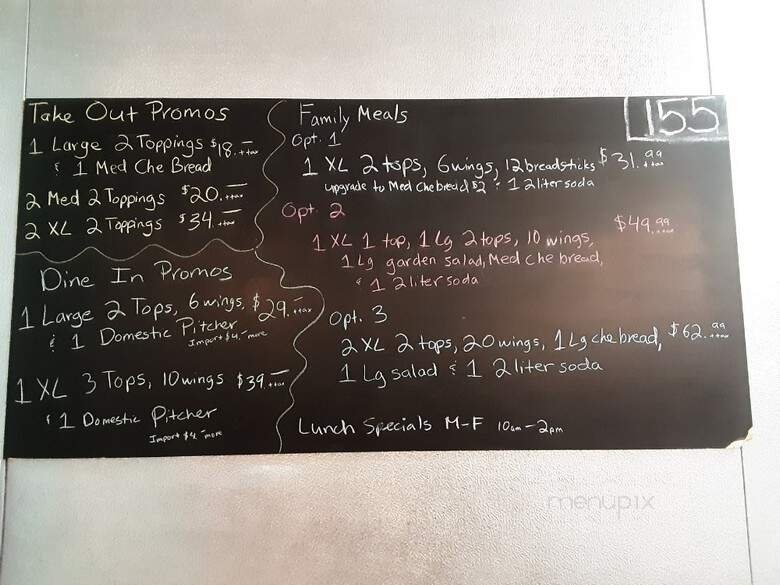 Take Out Promos
1 Large 2 Toppings $18.— +tax
& 1 Med Che Bread
2 Med 2 Toppings $20.— +tax
2 XL 2 Toppings $34.— +tax
Dine In Promos
1 Large 2 Tops, 6 wings, $29.— +tax
& 1 Domestic Pitcher
Import $4.— more
1 XL 3 Tops, 10 wings $39.— +tax
& 1 Domestic Pitcher
Import $4.— more
Family Meals
Opt. 1
1 XL 2 tops, 6 wings, 12 breadsticks $31.99 +tax
upgrade to Med Che bread $2 & 1 2 liter soda
Opt. 2
1 XL 1 top, 1 Lg 2 tops, 10 wings, $49.99 +tax
1 Lg garden salad, Med Che bread,
& 1 2 liter soda
Opt. 3
2 XL 2 tops, 20 wings, 1 Lg che bread, $62.99 +tax
1 Lg salad & 1 2 liter soda
Lunch Specials M-F 10am-2pm
155
menupix